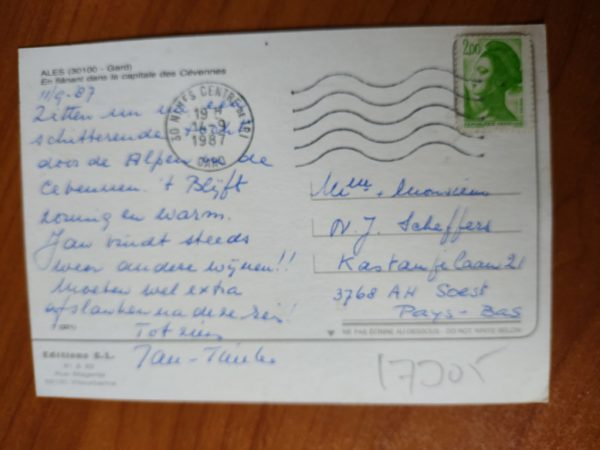 ALES (30100 - Gard)
En flânant dans la capitale des Cévennes
11/9.87
Zitten nu
schitterende
door de Alpen de
Cevennen. 't Blijft
zonnig en warm.
Jan vindt steeds
weer andere wijnen!!
Moeten wel extra
afslanken na deze reis!
Tot ziens
Jan-Tineke
Editions S.L.
Rue Magenta
Villeurbanne
30 NIMES CENTRE
19H
14-9
1987
GARD
2,00
Mme + Monsieur
N.J. Scheffers
Kastanjelaan 21
3768 AH Soest
Pays-Bas
NE PAS ÉCRIRE AU-DESSOUS - DO NOT WRITE BELOW